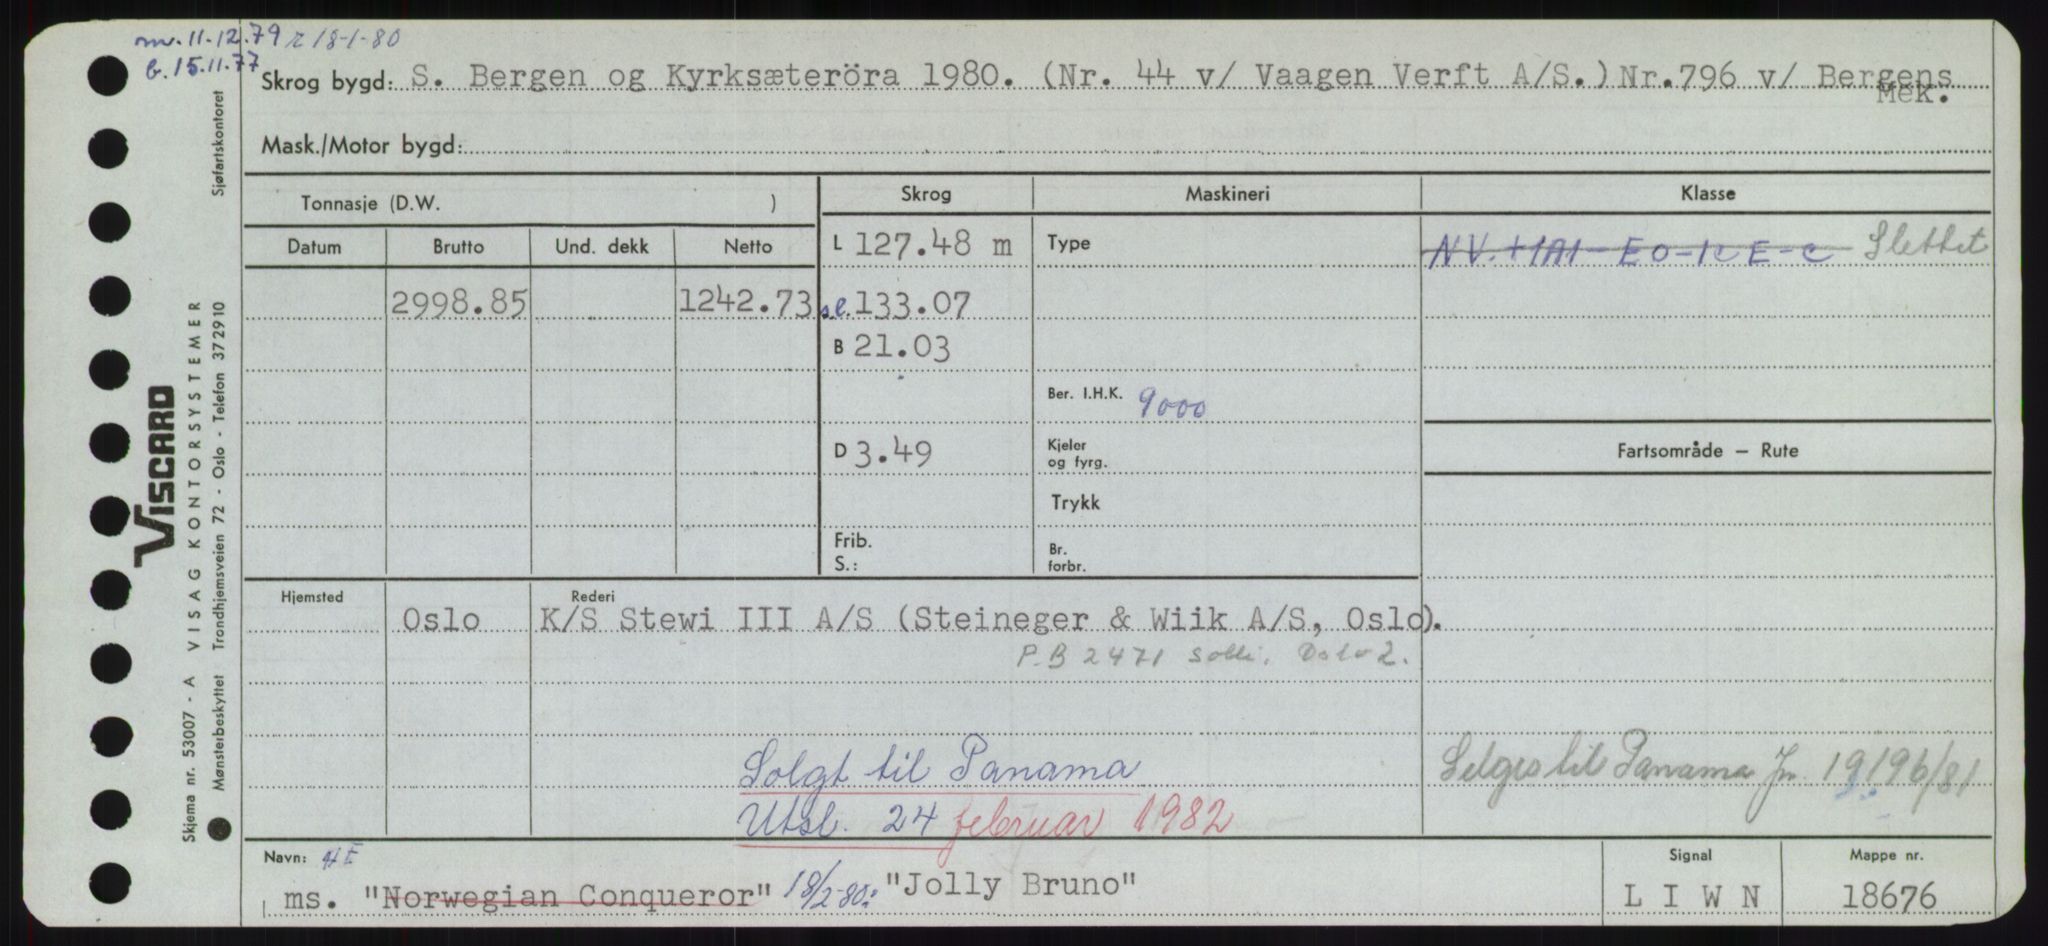 nv. 11-12.79 r 18-1-80
b. 15.11.77
Skrog bygd: S. Bergen og Kyrksæteröra 1980. (Nr. 44 v/ Vaagen Verft A/S.) Nr.796 v/ Bergens Mek.
Mask./Motor bygd:
Tonnasje (D.W. )
Skrog
Maskineri
Klasse
Datum
Brutto
Und. dekk
Netto
L 127.48 m
Type
NV. +1A1 - EO - ICE - C Slettet
2998.85
1242.73
s.l. 133.07
B 21.03
Ber. I.H.K. 9000
D 3.49
Kjeler og fyrg.
Fartsområde – Rute
Trykk
Frib. S.:
Br. forbr.
Hjemsted
Oslo
Rederi
K/S Stewi III A/S (Steineger & Wiik A/S, Oslo).
P.B 2471 Solli, Oslo 2.
Solgt til Panama
Selges til Panama Jn 19196/81
Utsl. 24 februar 1982
Navn:
ms. "Norwegian Conqueror" 18/2-80: "Jolly Bruno"
Signal
L I W N
Mappe nr.
18676
VISCARD
VISAG KONTORSYSTEMER
Skjema nr. 53007 - A
Mønsterbeskyttet Trondhjemsveien 72 - Oslo - Telefon 372910
Sjøfartskontoret